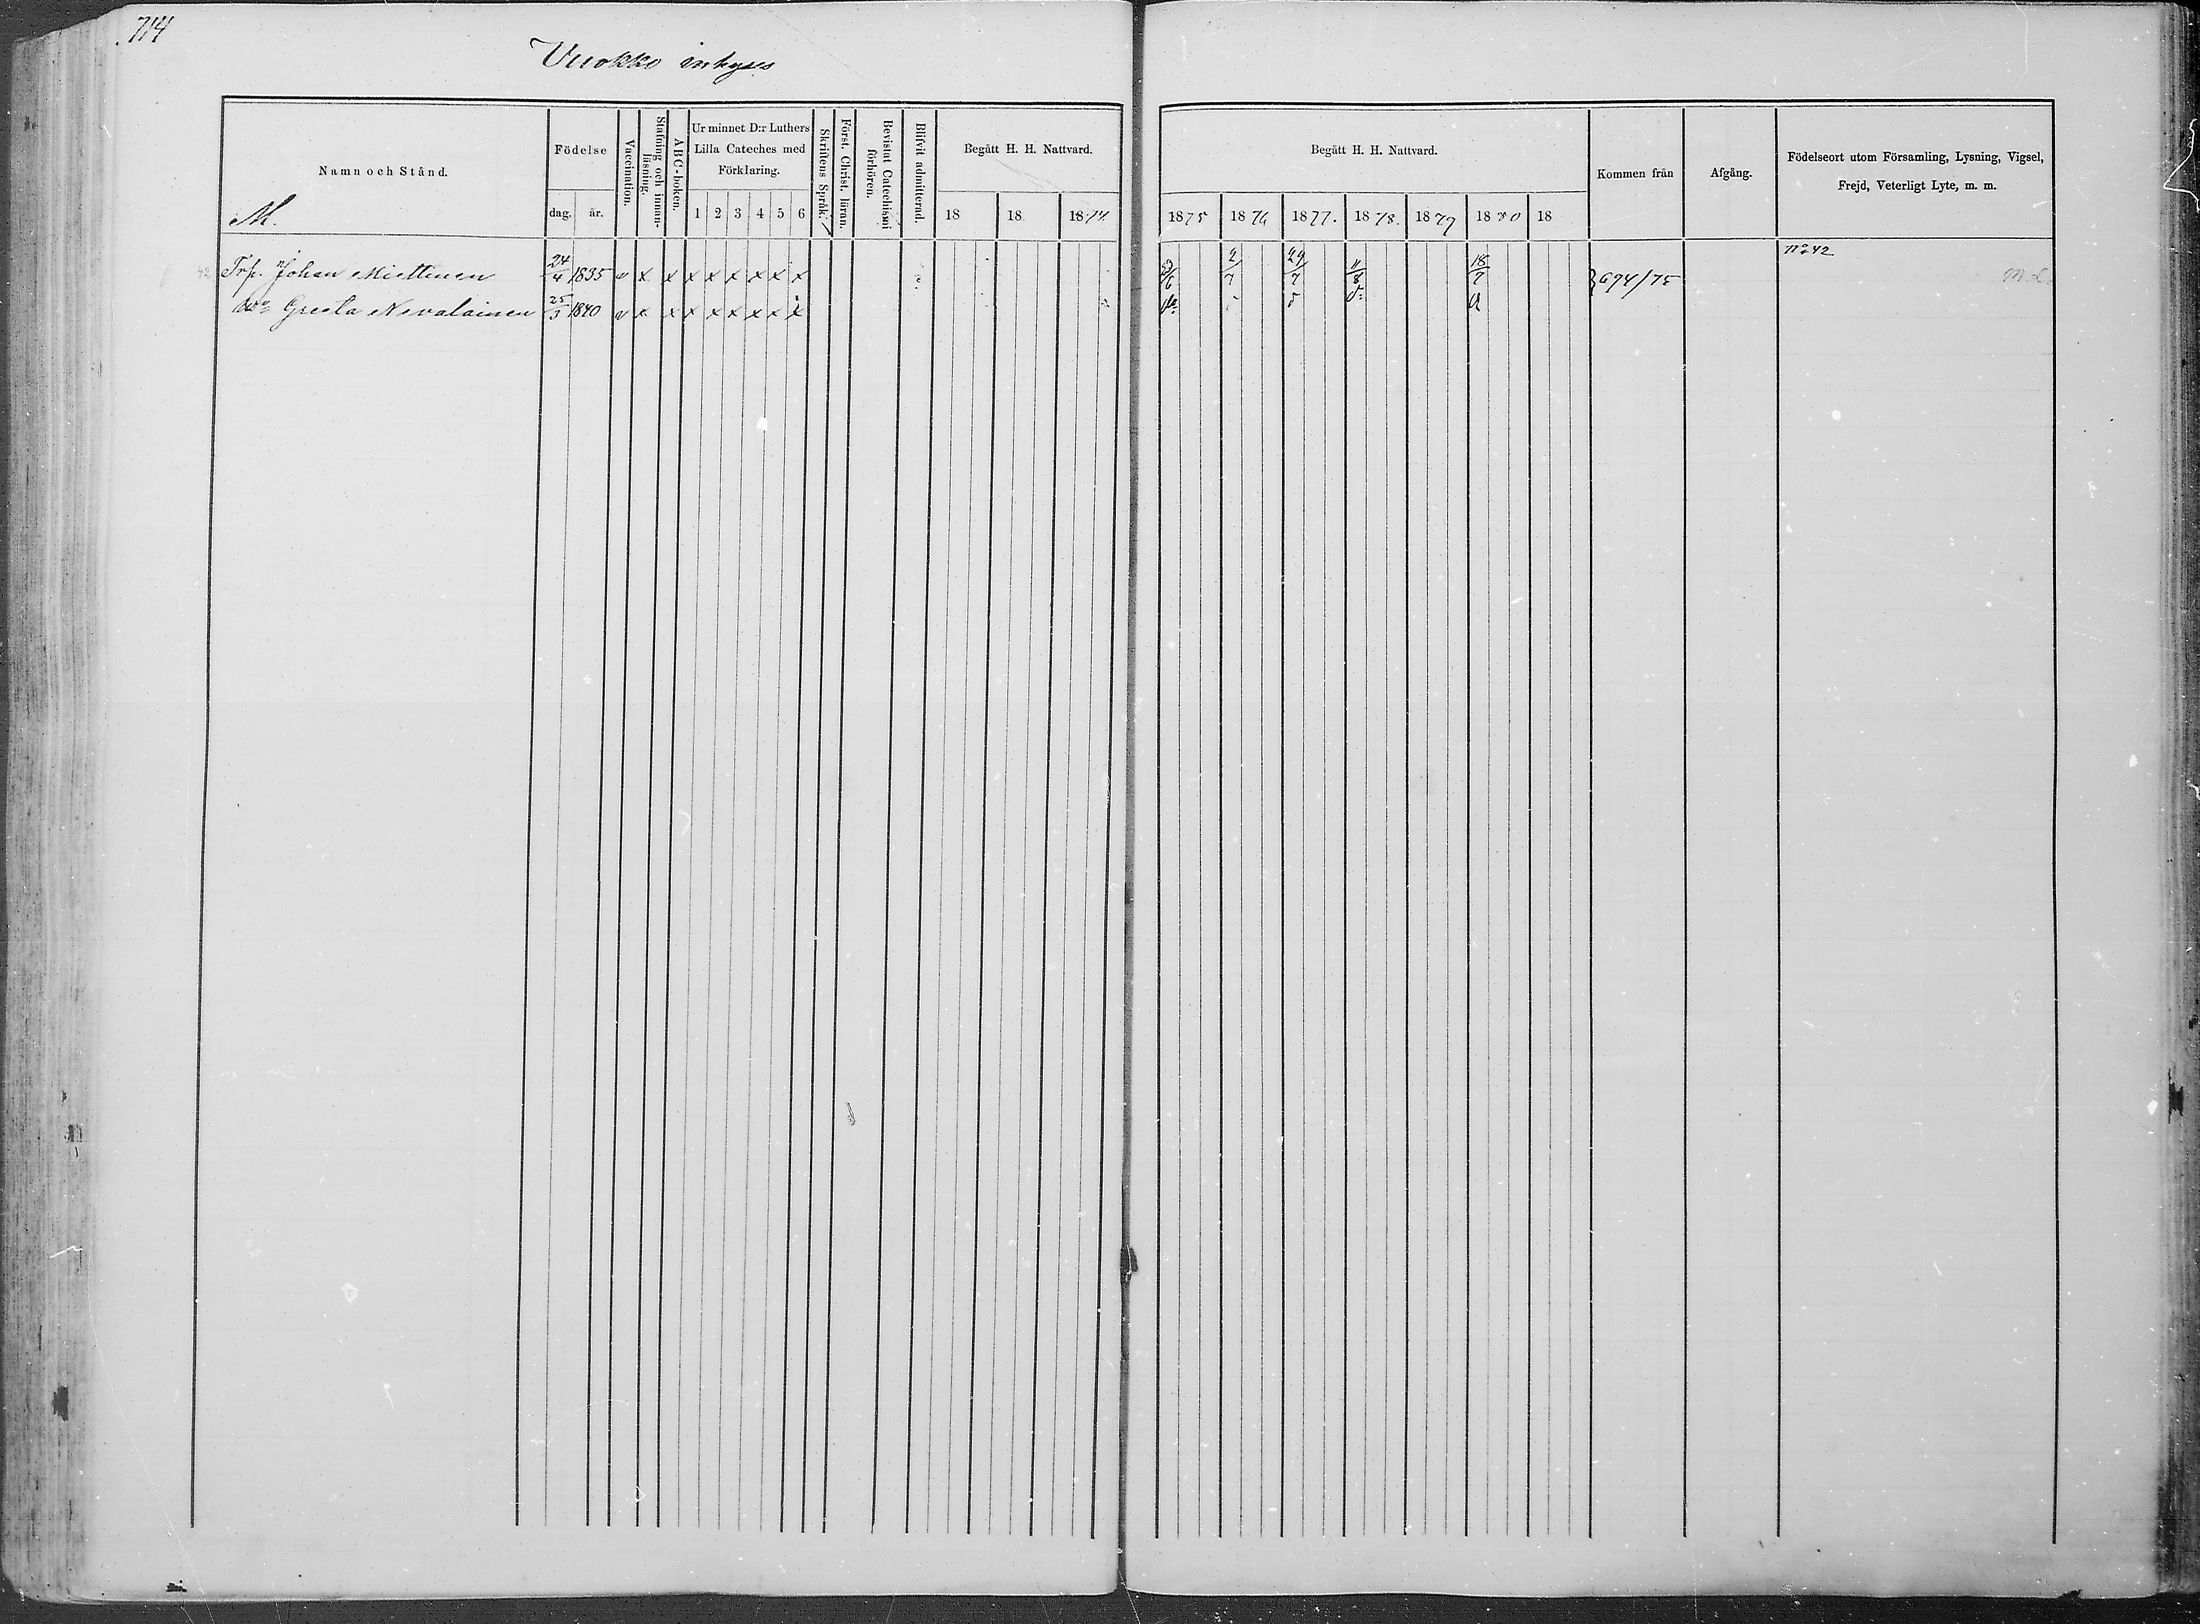 714
Vuokko inhyses
Namn och Stånd.
Födelse
dag. år.
Vaccination.
Stafning och innanläsning.
ABC-boken.
Ur minnet D:r Luthers
Lilla Cateches med
Förklaring.
1 2 3 4 5 6
Skriftens Språk.
Först. Christ. läran.
Bevistat Catechismi förhören.
Blifvit admitterad.
Begått H. H. Nattvard.
18 18 1874
Begått H. H. Nattvard.
1875 1876 1877. 1878. 1879 1880 18
Kommen från
Afgång.
Födelseort utom Församling, Lysning, Vigsel,
Frejd, Veterligt Lyte, m. m.
M.
Trp. Johan Miettinen 24/4 1835 v x x x x x x x x 2/7 29/7 11/8 18/7 694/75 No 42
Greeta Nevalainen 25/3 1840 v x x x x x x x x